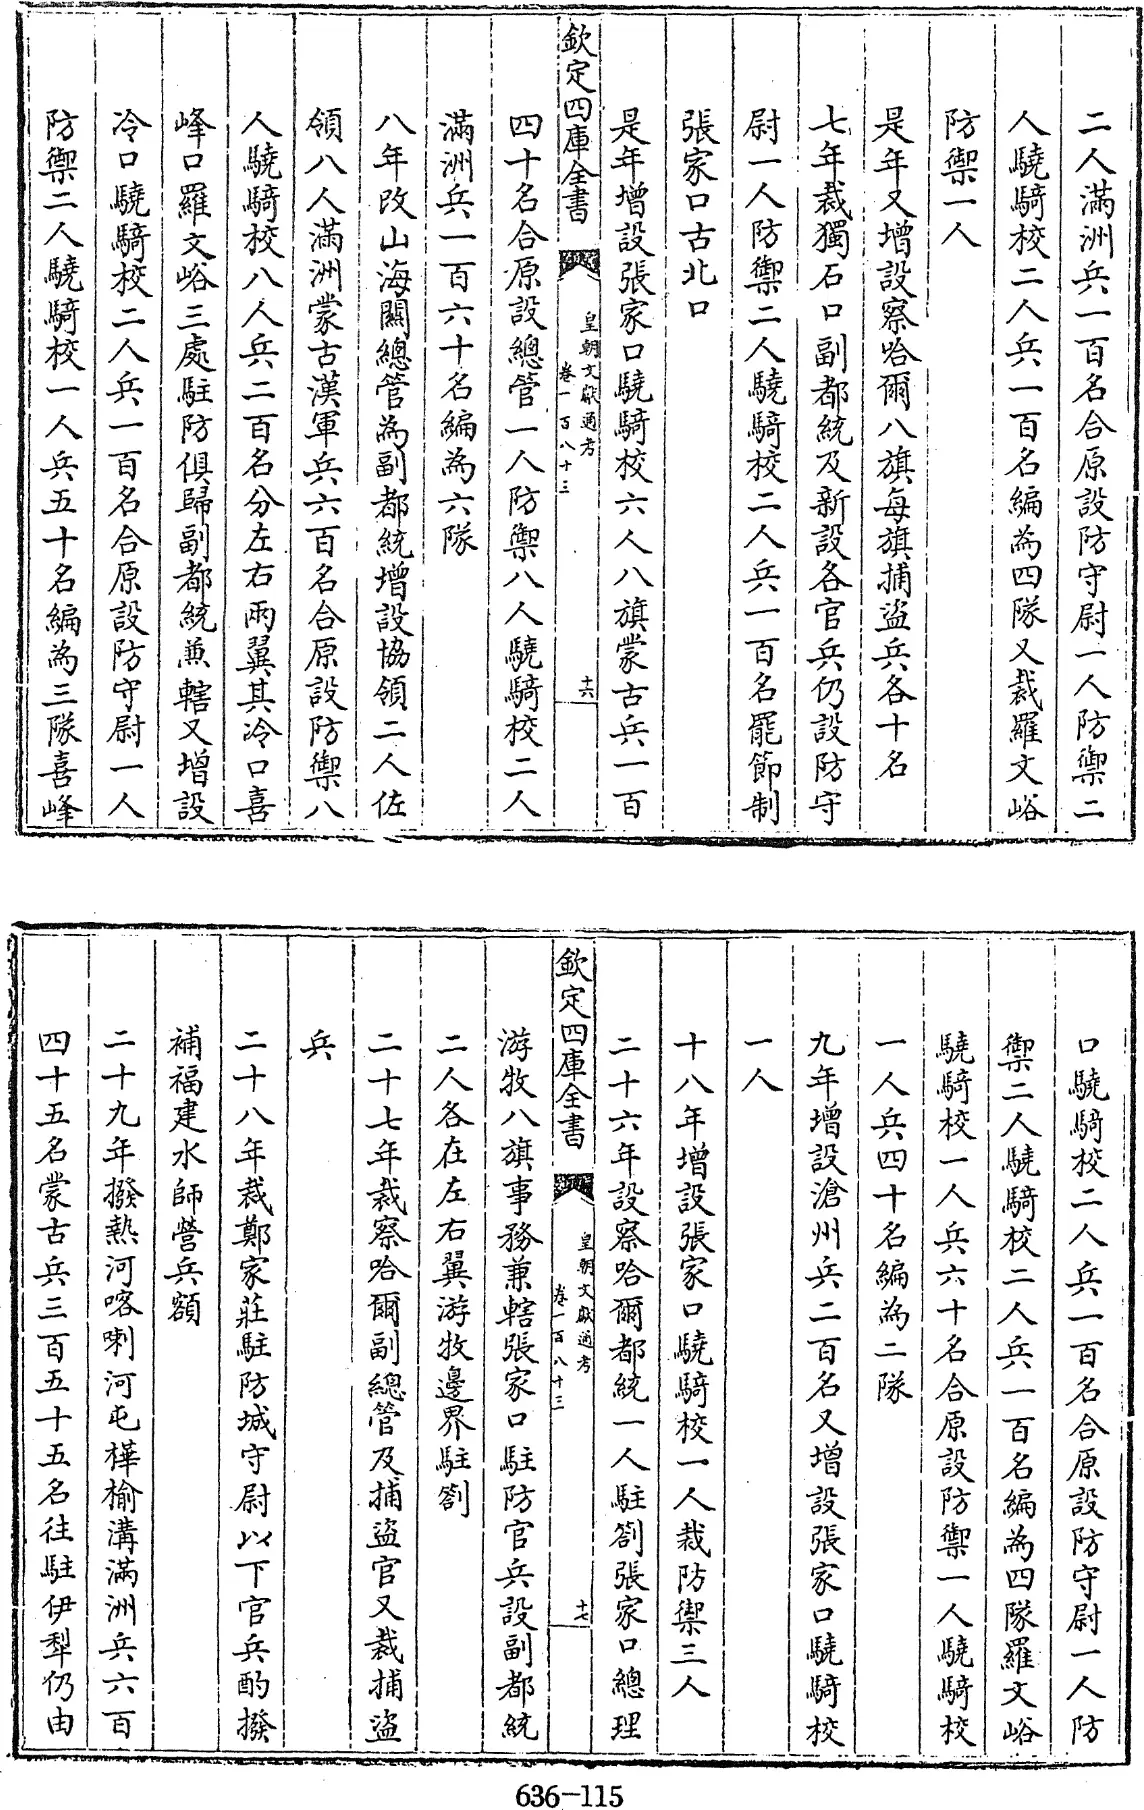 二人滿洲兵一百名合原設防守尉一人防禦二
人驍騎校二人兵一百名編為四隊又裁羅文峪
防禦一人
是年又增設察哈爾八旗每旗捕盜兵各十名
七年裁獨石口副都統及新設各官兵仍設防守
尉一人防禦二人驍騎校二人兵一百名罷節制
張家口古北口
是年增設張家口驍騎校六人八旗蒙古兵一百
欽定四庫全書
皇朝文獻通考
卷一百八十三
十六
四十名合原設總管一人防禦八人驍騎校二人
滿洲兵一百六十名編為六隊
八年改山海關總管為副都統增設協領二人佐
領八人滿洲蒙古漢軍兵六百名合原設防禦八
人驍騎校八人兵二百名分左右兩翼其冷口喜
峰口羅文峪三處駐防俱歸副都統兼轄又增設
冷口驍騎校二人兵一百名合原設防守尉一人
防禦二人驍騎校一人兵五十名編為三隊喜峰
口驍騎校二人兵一百名合原設防守尉一人防
禦二人驍騎校二人兵一百名編為四隊羅文峪
驍騎校一人兵六十名合原設防禦一人驍騎校
一人兵四十名編為二隊
九年增設滄州兵二百名又增設張家口驍騎校
一人
十八年增設張家口驍騎校一人裁防禦三人
二十六年設察哈爾都統一人駐劄張家口總理
欽定四庫全書
皇朝文獻通考
卷一百八十三
十七
游牧八旗事務兼轄張家口駐防官兵設副都統
二人各在左右翼游牧邊界駐劄
二十七年裁察哈爾副總管及捕盜官又裁捕盜
兵
二十八年裁鄭家莊駐防城守尉以下官兵酌撥
補福建水師營兵額
二十九年撥熱河喀喇河屯樺榆溝滿洲兵六百
四十五名蒙古兵三百五十五名往駐伊犁仍由
636-115